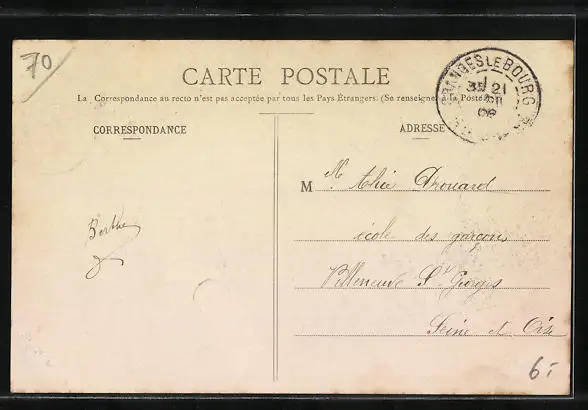 70
CARTE POSTALE
La Correspondance au recto n'est pas acceptée par tous les Pays Étrangers. (Se renseigner à la Poste)
GRANGES LE BOURG
21
08
CORRESPONDANCE
ADRESSE
M
M. Drouard
école des garçons
Villeneuve St Georges
Seine et Oise
Berthe
6